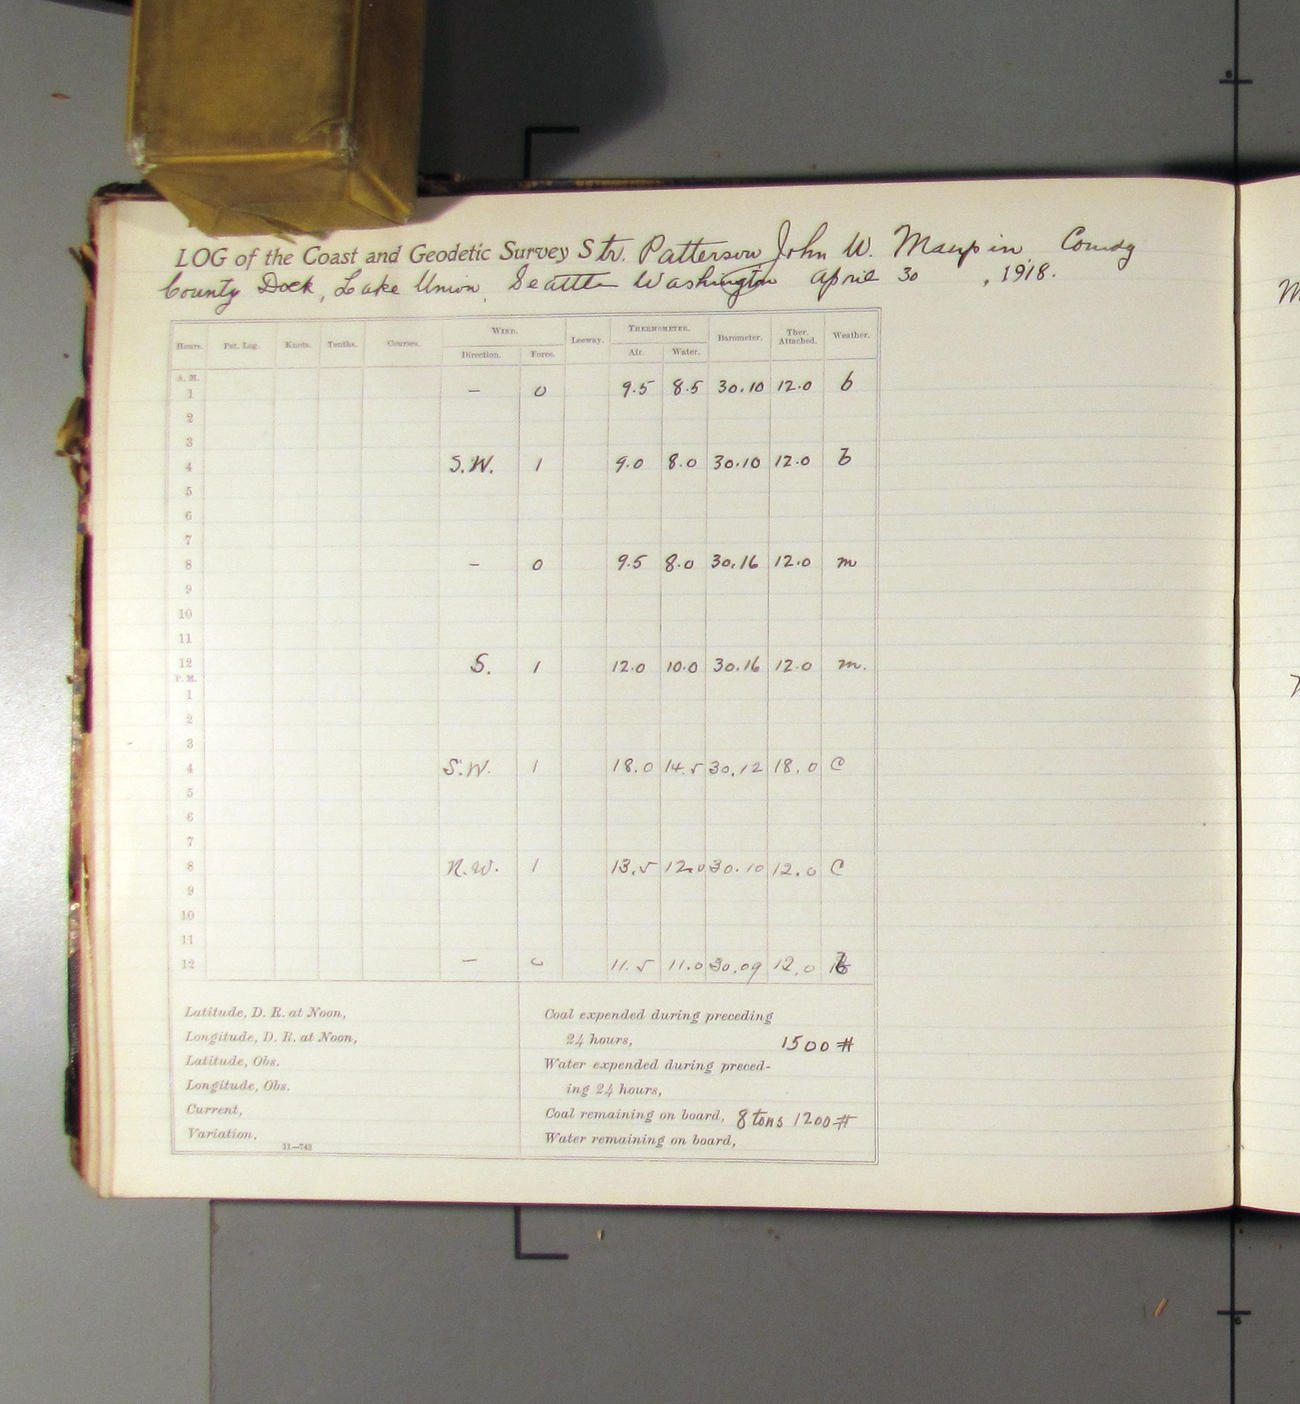 LOG of the Coast and Geodetic Survey Str. Patterson John W. Maupin, Comdg
County Dock, Lake Union, Seattle Washington April 30, 1918.
Hours. Pat. Log. Knots. Tenths. Courses. WIND. Leeway. THERMOMETER. Barometer. Ther. Attached. Weather.
Direction. Force. Air. Water.
A. M.
1 — 0 9.5 8.5 30.10 12.0 b
2
3
4 S.W. 1 9.0 8.0 30.10 12.0 b
5
6
7
8 — 0 9.5 8.0 30.16 12.0 m
9
10
11
12 S. 1 12.0 10.0 30.16 12.0 m.
P. M.
1
2
3
4 S.W. 1 18.0 14.5 30.12 18.0 C
5
6
7
8 N.W. 1 13.5 12.0 30.10 12.0 C
9
10
11
12 — 0 11.5 11.0 30.09 12.0 b
Latitude, D. R. at Noon,
Longitude, D. R. at Noon,
Latitude, Obs.
Longitude, Obs.
Current,
Variation,
11—743
Coal expended during preceding
24 hours, 1500 #
Water expended during preced-
ing 24 hours,
Coal remaining on board, 8 tons 1200 #
Water remaining on board,